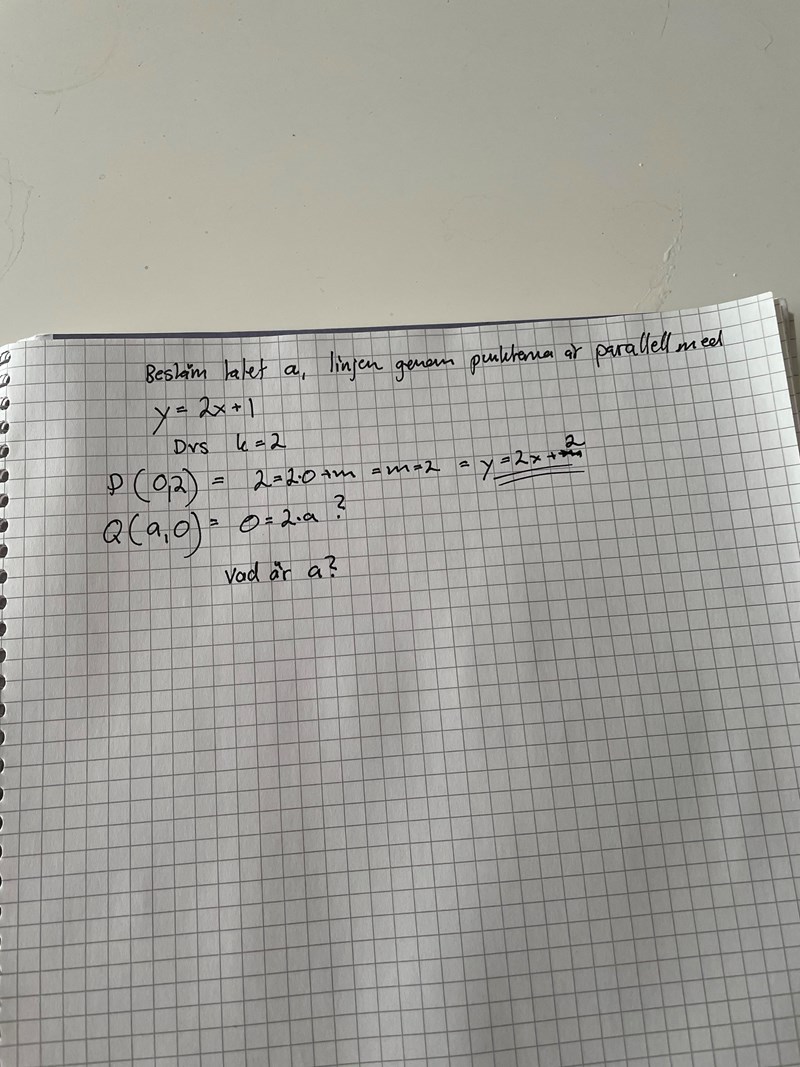 Bestäm talet a, linjen genom punkterna är parallell med
y = 2x+1
Dvs k=2
P (0,2) = 2=2·0+m = m=2 = y=2x+2
Q(a,0) = 0=2·a ?
Vad är a?